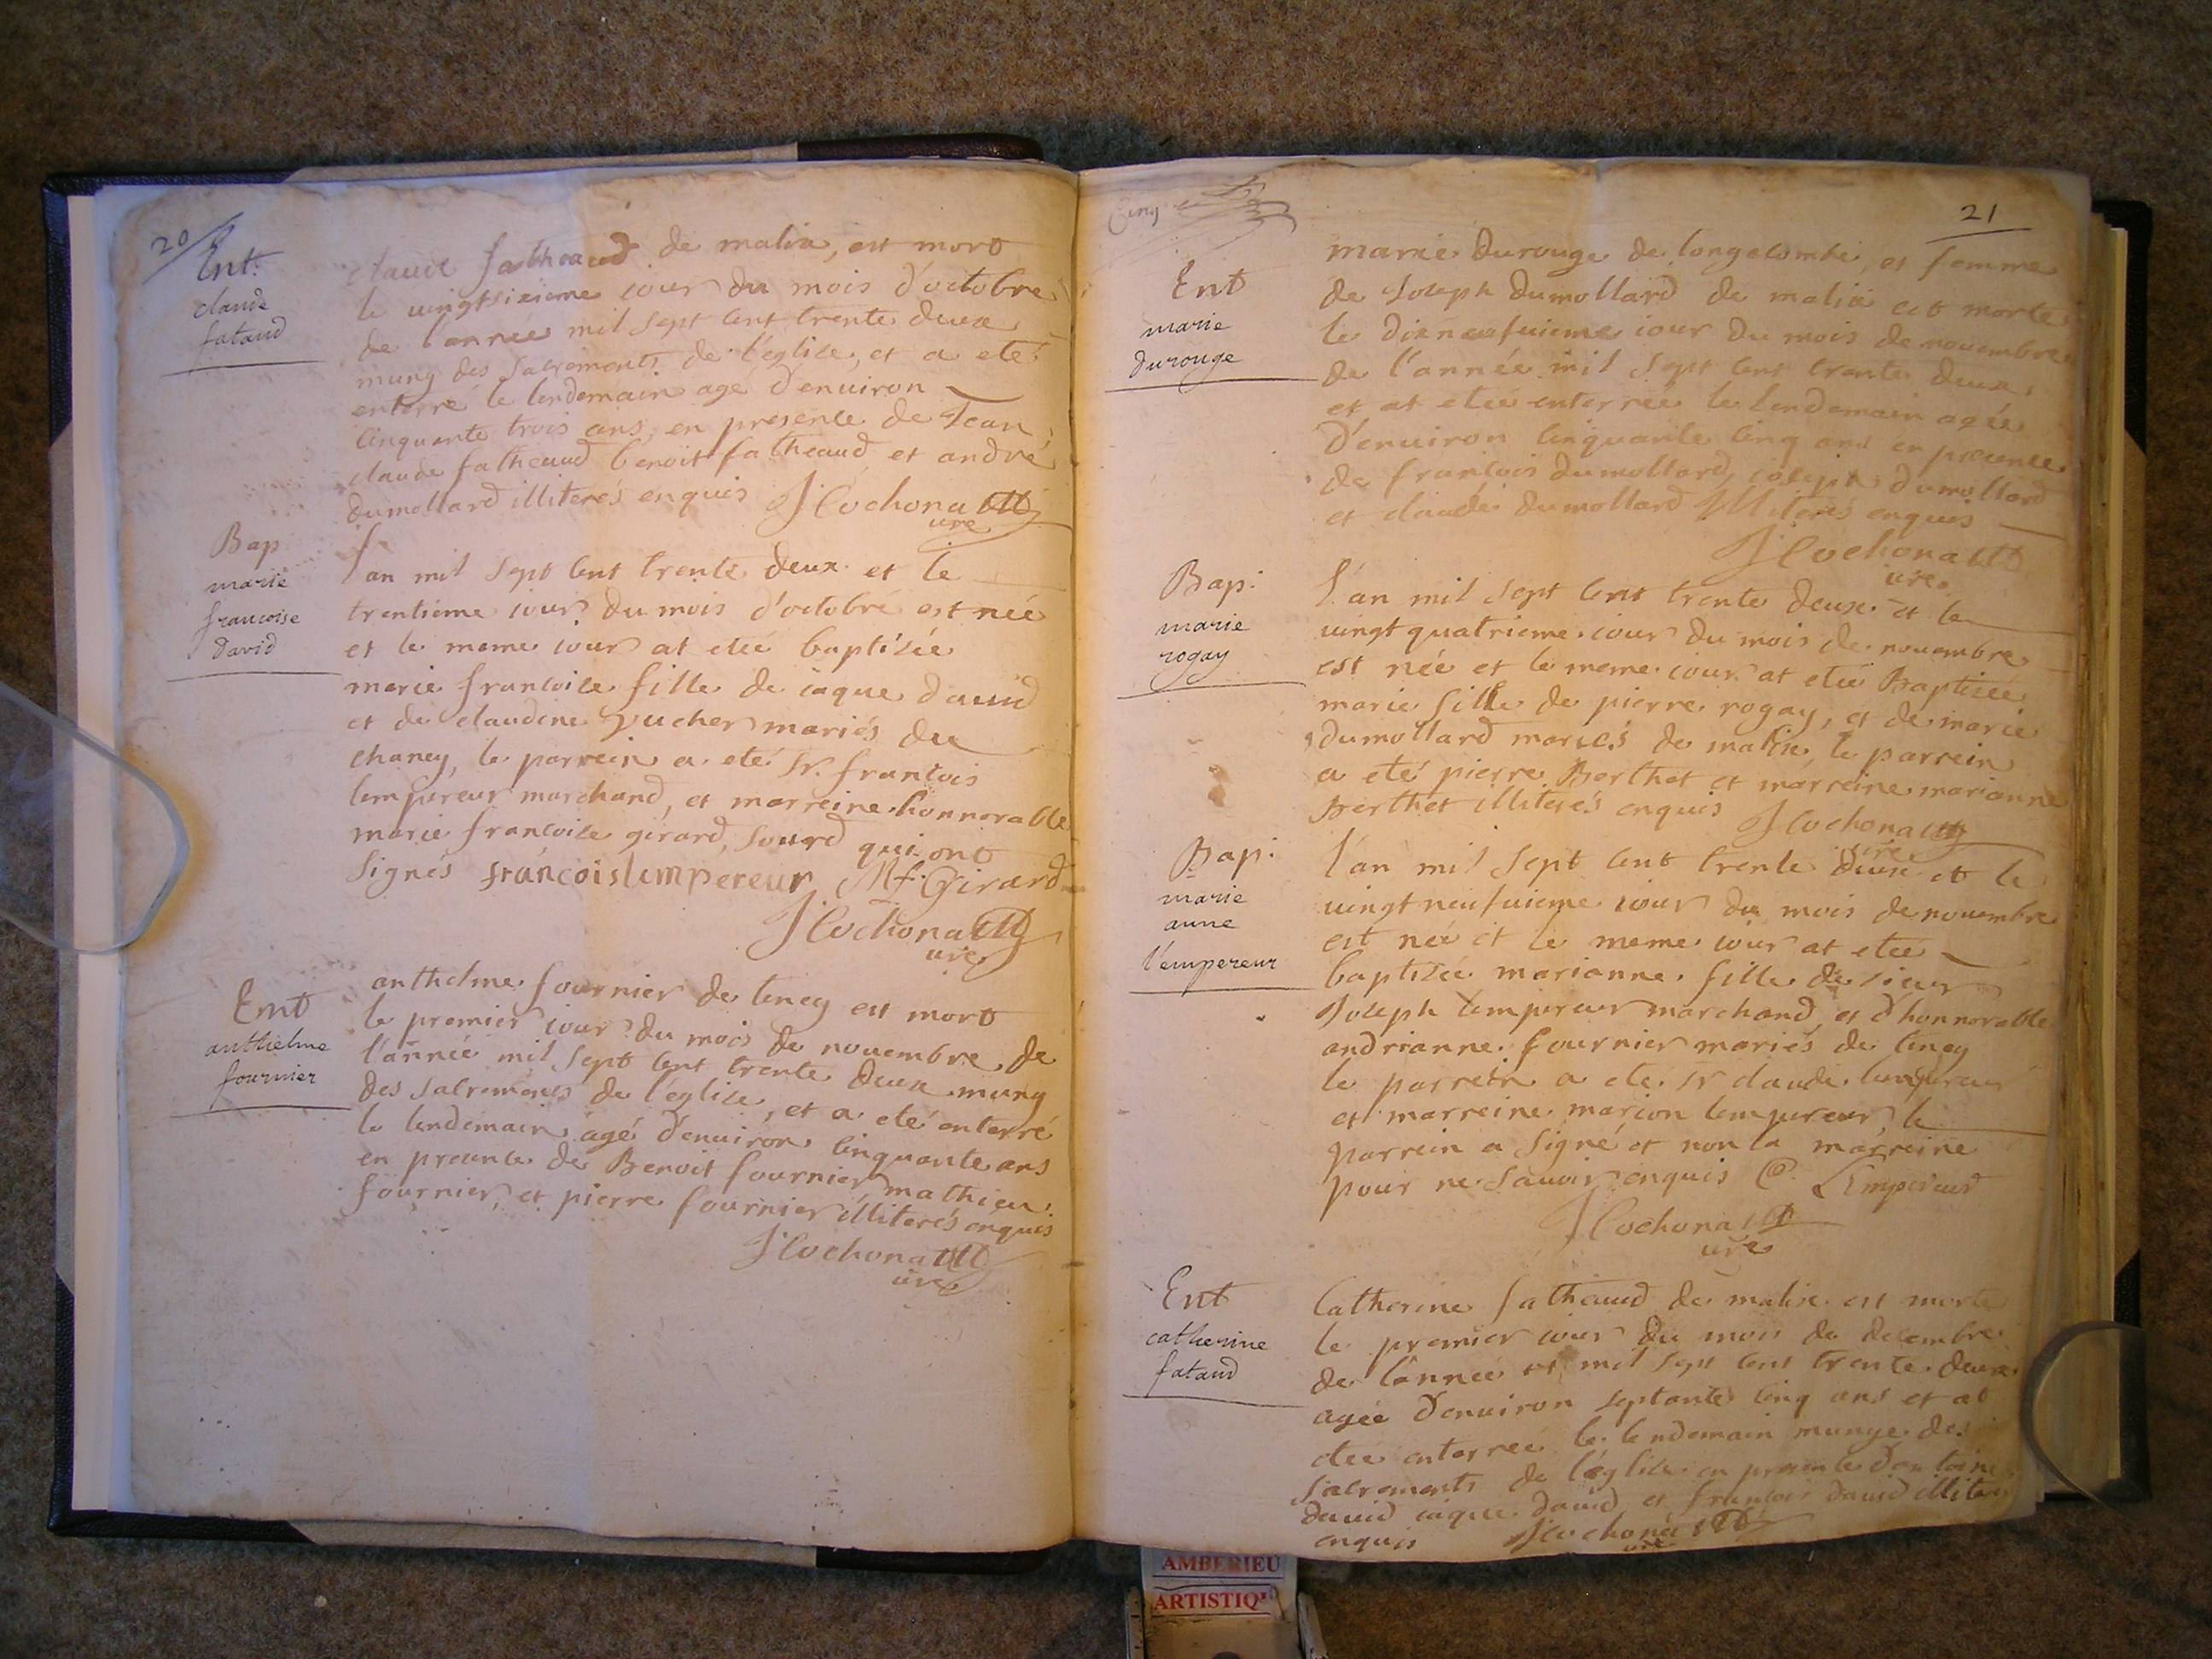 20
Ent.
claude
fataud
claude fatheaud de malix, est mort
le vingtsixieme iour du mois d'octobre
de l'annee mil sept cent trente deux
muny des sacrements de l'eglise, et a eté
enterré le lendemain agé d'enuiron
cinquante trois ans, en presence de Jean
claude fatheaud benoit fatheaud et andré
dumollard illiterés enquis J Cochonatt
cure
Bap
marie
francoise
david
l'an mil sept cent trente deux et le
trentieme iour du mois d'octobre est née
et le meme iour at etée baptisée
marie francoise fille de iaque dauid
et de claudine vucher mariés du
chaney, le parrein a eté Sr. francois
lempereur marchand, et marreine honnorable
marie francoise girard, qui ont
signés francois lempereur Mf. Girard
J Cochonatt
cure
Ent
anthelme
fournier
anthelme fournier de teney est mort
le premier iour du mois de nouembre, de
l'année mil sept cent trente deux muny
des sacrements de l'eglise, et a eté enterré
le lendemain, agé d'enuiron cinquante ans
en presence de Benoit fournier mathieu
fournier, et pierre fournier illiterés enquis
J Cochonatt
cure
21
Ent
marie
durouge
marie durouge de longecombe, et femme
de Joseph dumollard de malix est morte
le dixneufuieme iour du mois de nouembre
de l'année mil sept cent trente deux,
et at etée enterrée le lendemain agée
d'enuiron cinquante cinq ans en presence
de francois dumollard, ioseph dumollard
et claude dumollard illiterés enquis
J Cochonatt
cure
Bap.
marie
rogay
l'an mil sept cent trente deux et le
uingt quatrieme iour du mois de nouembre
est née et le meme iour at etée Baptisée
marie fille de pierre rogay, et de marie
dumollard mariés de malix, le parrein
a eté pierre Berthet et marreine marianne
Berthet illiterés enquis J Cochonatt
cure
Bap.
marie
anne
l'empereur
l'an mil sept cent trente deux et le
uingt neufuieme iour du mois de nouembre
est née et le meme iour at etée
baptisée marianne fille de sieur
Joseph lempereur marchand, et d'honnorable
andrianne fournier mariés de teney
le parrein a eté sr claude lempereur
et marreine marion lempereur, le
parrein a signé et non la marreine
pour ne sauoir enquis C. Lempereur
J Cochonatt
cure
Ent
catherine
fataud
Catherine fatheaud de malix est morte
le premier iour du mois de decembre
de l'année mil sept cent trente deux
agée d'enuiron septante cinq ans et at
etée enterrée le lendemain munye des
sacrements de l'eglise en presence d'antoine
dauid iaque dauid et francois dauid illiterés
enquis J Cochonatt
cure
AMBERIEU
ARTISTIQ